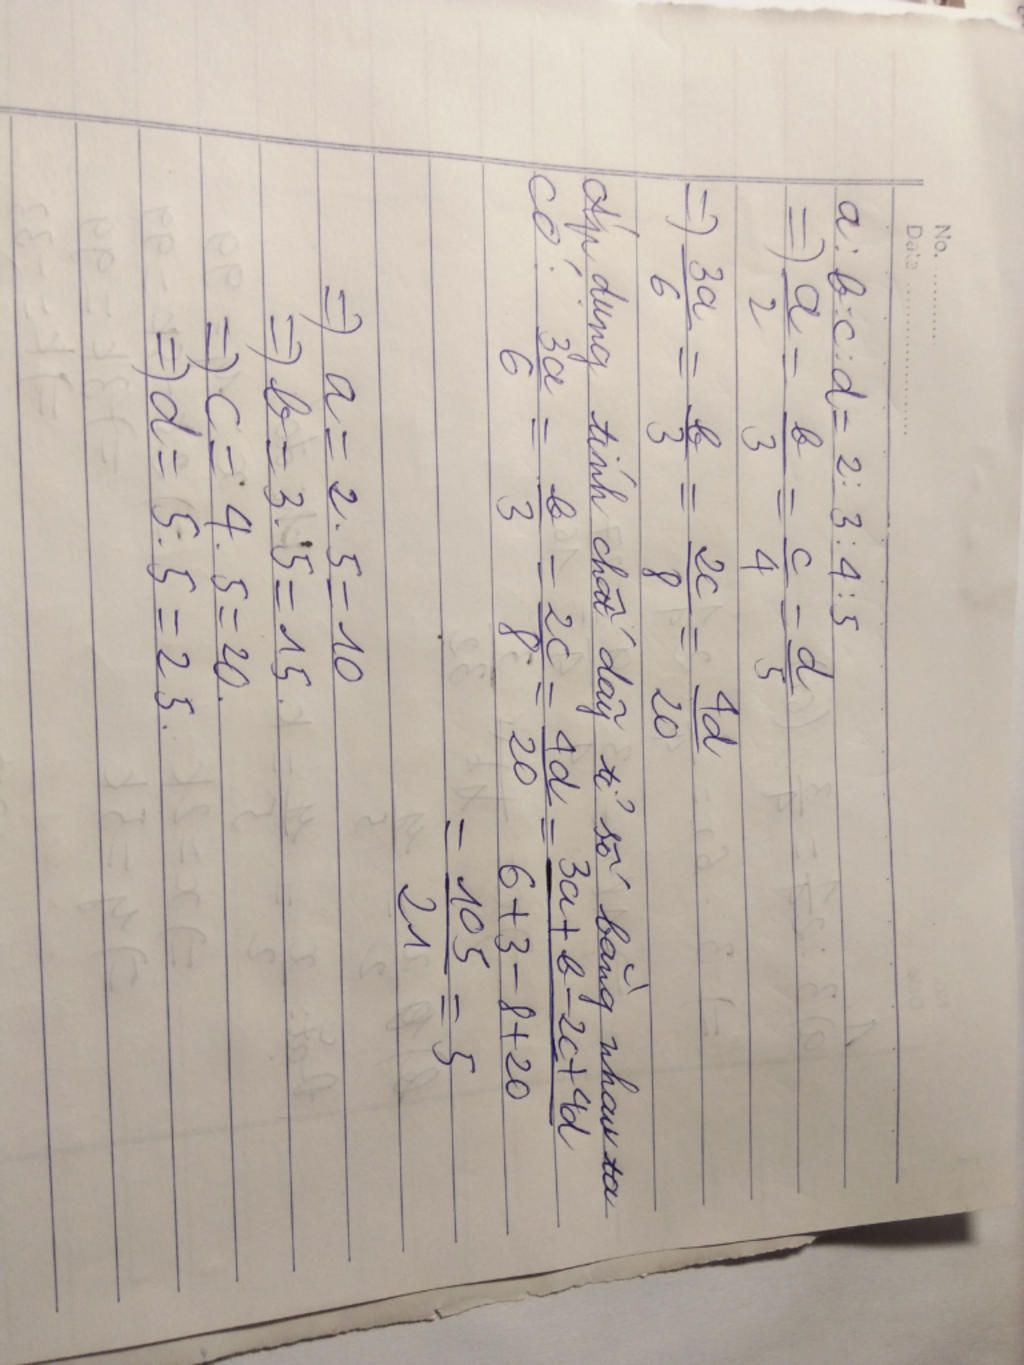 No. ..........
Date ......................
a:b:c:d = 2:3:4:5
=) a/2 = b/3 = c/4 = d/5
=) 3a/6 = b/3 = 2c/8 = 4d/20
Áp dụng tính chất dãy tỉ số bằng nhau ta
có: 3a/6 = b/3 = 2c/8 = 4d/20 = 3a+b-2c+4d/6+3-8+20
= 105/21 = 5
=) a = 2.5 = 10
=) b = 3.5 = 15.
=) c = 4.5 = 20.
=) d = 5.5 = 25.